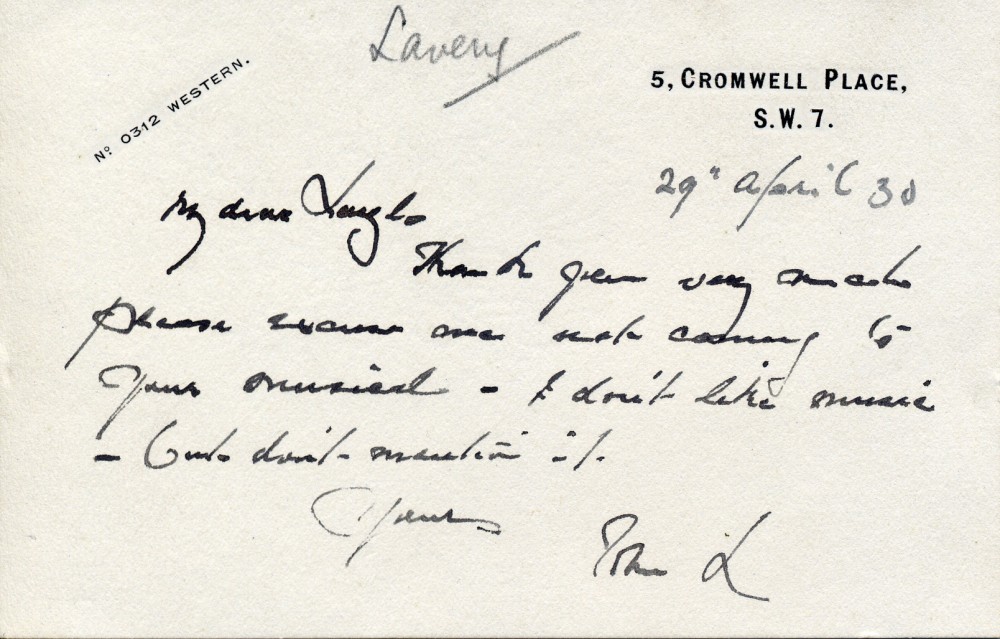 Lavery
5, CROMWELL PLACE,
Nº 0312 WESTERN.
S.W. 7.
29" April 30
My dear
Thank you very much
please excuse me not coming to
your musical - I don't like music
- but don't mention it.
Yours
John L